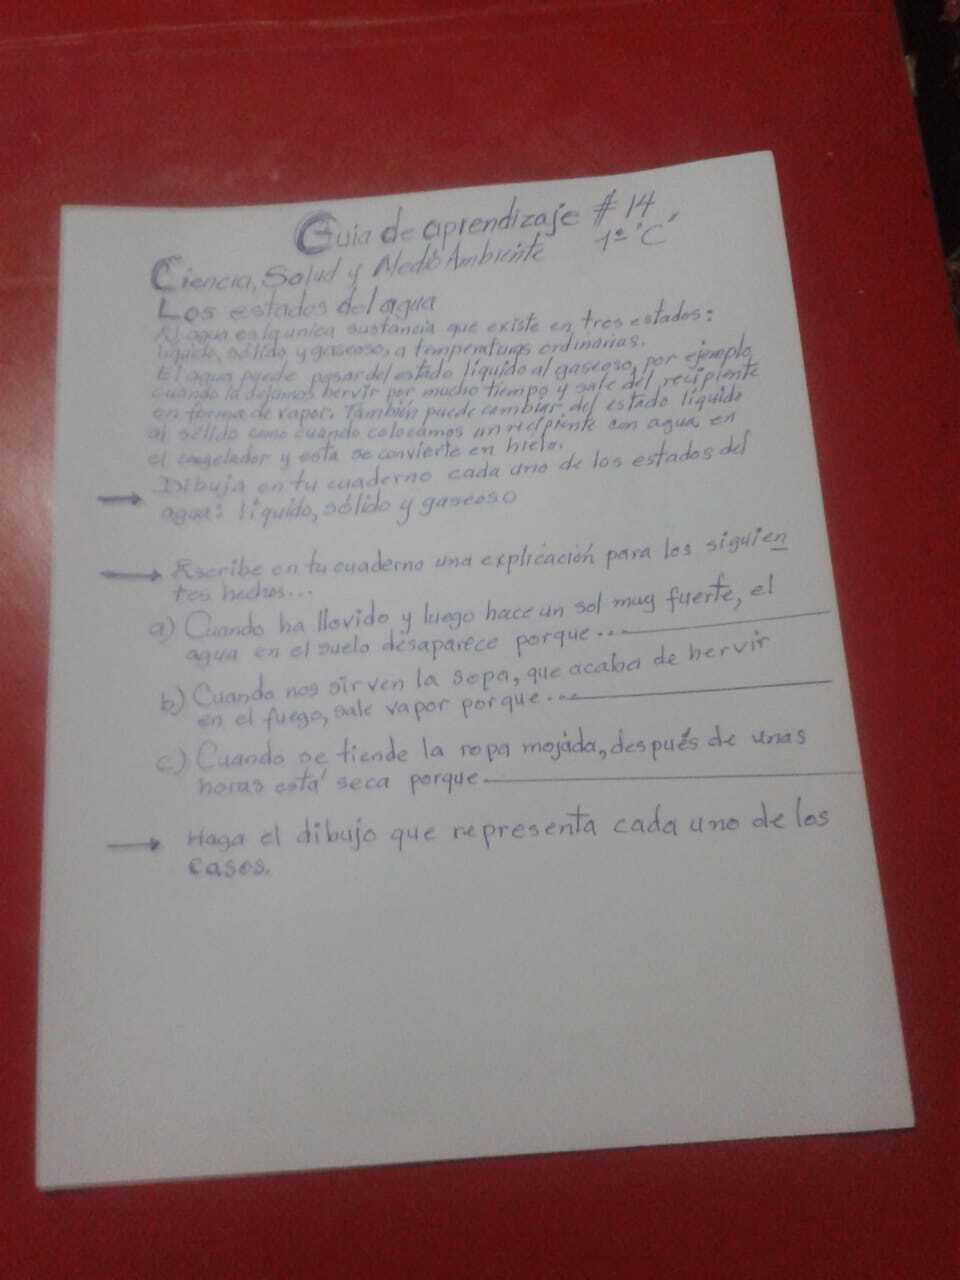 Guia de aprendizaje # 14
1º "C"
Ciencia, Salud y Medio Ambiente
Los estados del agua
El agua es la unica sustancia que existe en tres estados:
liquido, sólido y gaseoso, a temperaturas ordinarias.
El agua puede pasar del estado líquido al gaseoso, por ejemplo
cuando la dejamos hervir por mucho tiempo y sale del recipiente
en forma de vapor. También puede cambiar del estado líquido
al sólido como cuando colocamos un recipiente con agua en
el congelador y esta se convierte en hielo.
→ Dibuja en tu cuaderno cada uno de los estados del
agua: líquido, sólido y gaseoso
→ Escribe en tu cuaderno una explicación para los siguien
tes hechos...
a) Cuando ha llovido y luego hace un sol muy fuerte, el
agua en el suelo desaparece porque...
b) Cuando nos sirven la sopa, que acaba de hervir
en el fuego, sale vapor porque...
c) Cuando se tiende la ropa mojada, después de unas
horas está seca porque
→ Haga el dibujo que representa cada uno de los
casos.